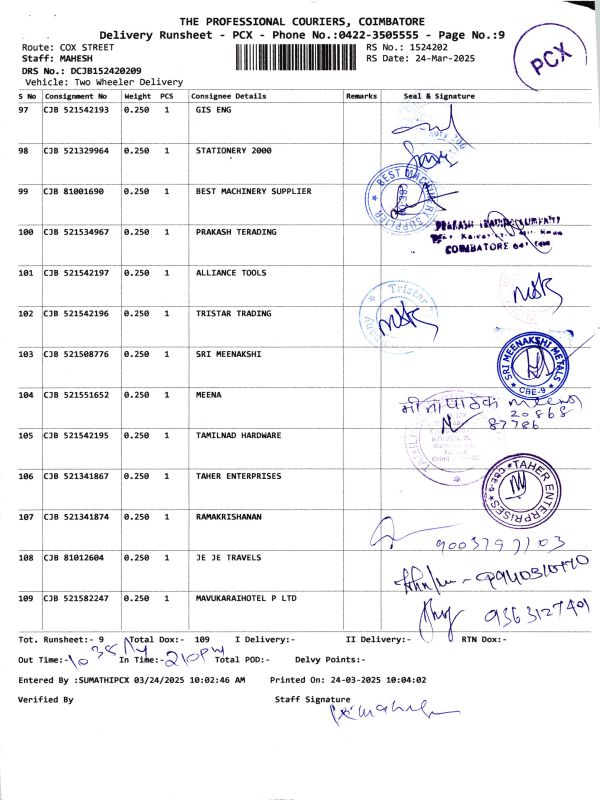 THE PROFESSIONAL COURIERS, COIMBATORE
Delivery Runsheet - PCX - Phone No.:0422-3505555 - Page No.:9
Route: COX STREET RS No.: 1524202
Staff: MAHESH RS Date: 24-Mar-2025
DRS No.: DCJB152420209
Vehicle: Two Wheeler Delivery
PCX
S No Consignment No Weight PCS Consignee Details Remarks Seal & Signature
97 CJB 521542193 0.250 1 GIS ENG
98 CJB 521329964 0.250 1 STATIONERY 2000
99 CJB 81001690 0.250 1 BEST MACHINERY SUPPLIER
BEST MACHINERY SUPPLIER
100 CJB 521534967 0.250 1 PRAKASH TERADING
PRAKASH
COIMBATORE
101 CJB 521542197 0.250 1 ALLIANCE TOOLS
102 CJB 521542196 0.250 1 TRISTAR TRADING
Tristar
103 CJB 521508776 0.250 1 SRI MEENAKSHI
SRI MEENAKSHI METALS
CBE-9
104 CJB 521551652 0.250 1 MEENA
मीना पाठक meena
20868
87786
105 CJB 521542195 0.250 1 TAMILNAD HARDWARE
106 CJB 521341867 0.250 1 TAHER ENTERPRISES
TAHER ENTERPRISES
107 CJB 521341874 0.250 1 RAMAKRISHANAN
108 CJB 81012604 0.250 1 JE JE TRAVELS
109 CJB 521582247 0.250 1 MAVUKARAIHOTEL P LTD
9363127401
Tot. Runsheet:- 9 Total Dox:- 109 I Delivery:- II Delivery:- RTN Dox:-
Out Time:- In Time:- 210PM Total POD:- Delvy Points:-
Entered By :SUMATHIPCX 03/24/2025 10:02:46 AM Printed On: 24-03-2025 10:04:02
Verified By Staff Signature